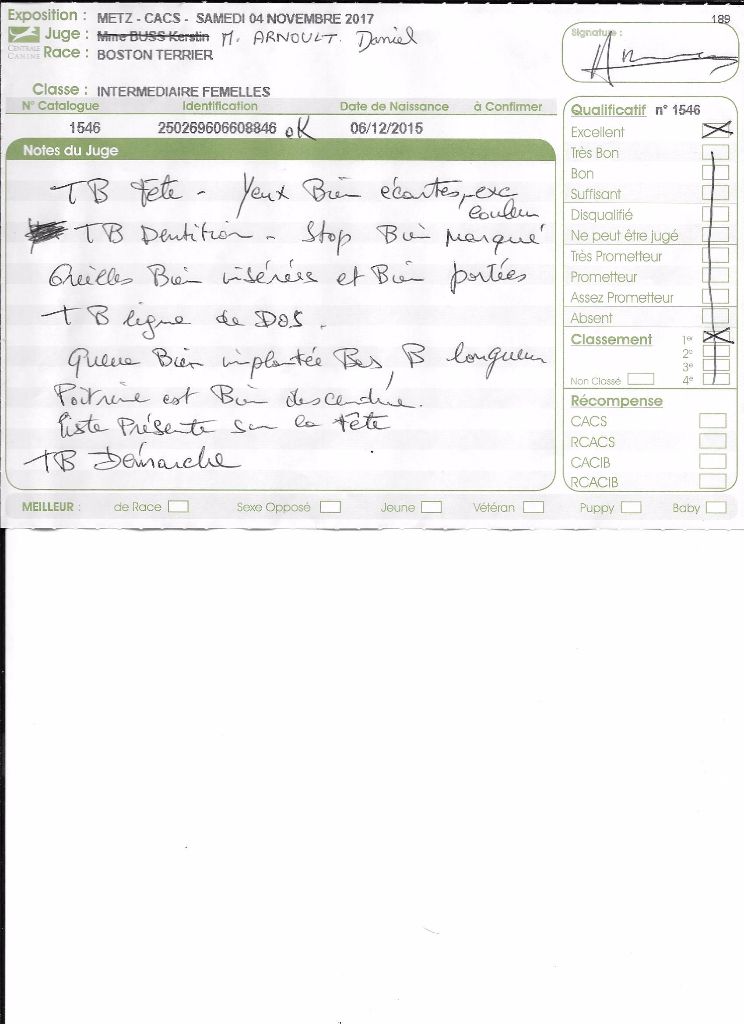 Exposition : METZ - CACS - SAMEDI 04 NOVEMBRE 2017
189
CENTRALE CANINE
Juge : Mme BUSS Kerstin M. ARNOULT. Daniel
Race : BOSTON TERRIER
Signature :
Classe : INTERMEDIAIRE FEMELLES
N° Catalogue Identification Date de Naissance à Confirmer
1546 250269606608846 OK 06/12/2015
Notes du Juge
TB Tête - Yeux Bien écartés, exc
couleur
TB Dentition - Stop Bien marqué
Oreilles Bien insérées et Bien portées
TB ligne de DOS.
Queue Bien implantée Bas, B longueur
Poitrine est Bien descendue.
Liste Présente sur la Tête
TB Démarche
Qualificatif n° 1546
Excellent
Très Bon
Bon
Suffisant
Disqualifié
Ne peut être jugé
Très Prometteur
Prometteur
Assez Prometteur
Absent
Classement 1er
2e
3e
Non Classé 4e
Récompense
CACS
RCACS
CACIB
RCACIB
MEILLEUR : de Race Sexe Opposé Jeune Vétéran Puppy Baby